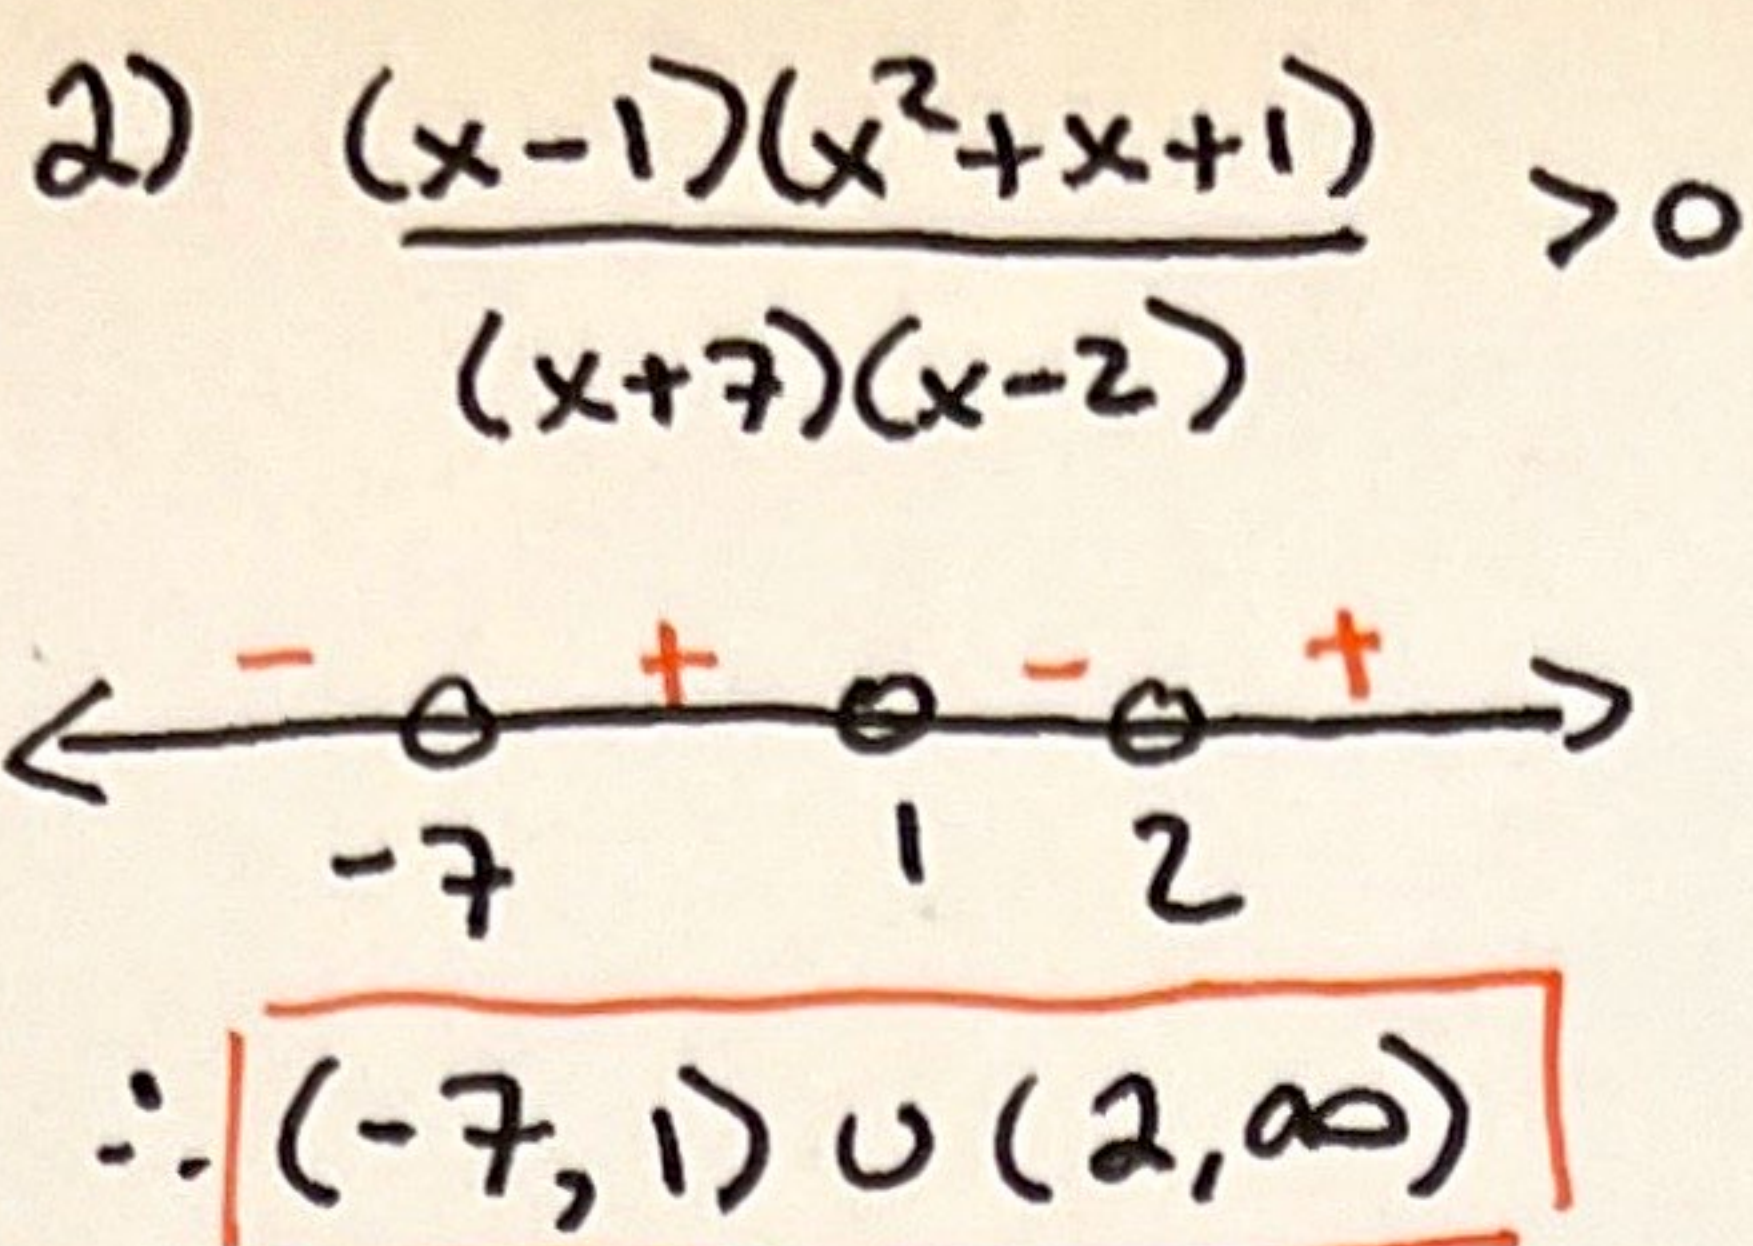 2) (x-1)(x²+x+1) > 0
(x+7)(x-2)
- + - +
-7 1 2
∴ (-7, 1) ∪ (2, ∞)